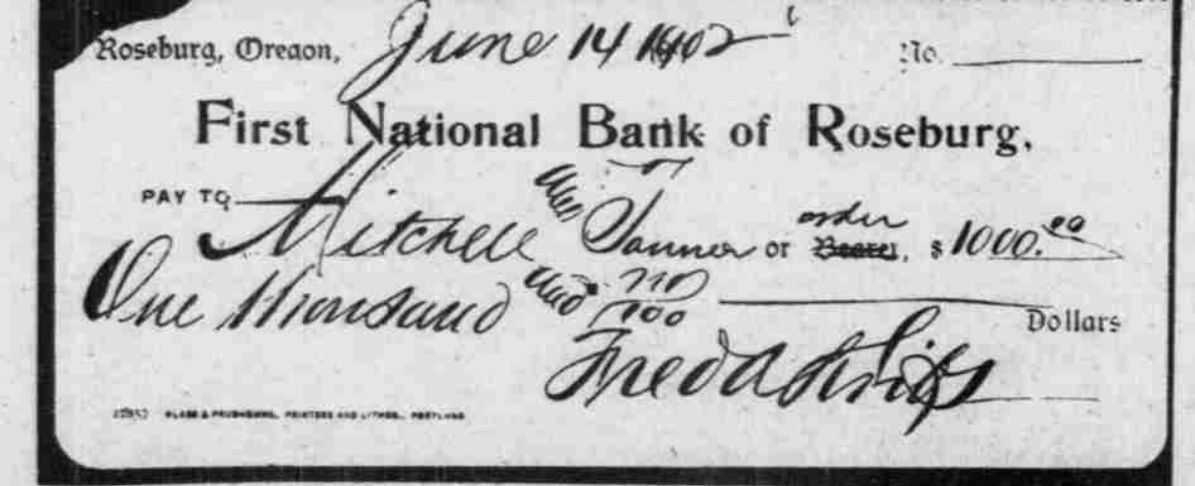 Roseburg, Oregon, June 14 1902 No.
First National Bank of Roseburg.
PAY TO Mitchell and Tanner or order Bearer, $ 1000.00
One thousand and no/100 Dollars
Fred A Kribs
GLASS & PRUDHOMME, PRINTERS AND LITHOS., PORTLAND